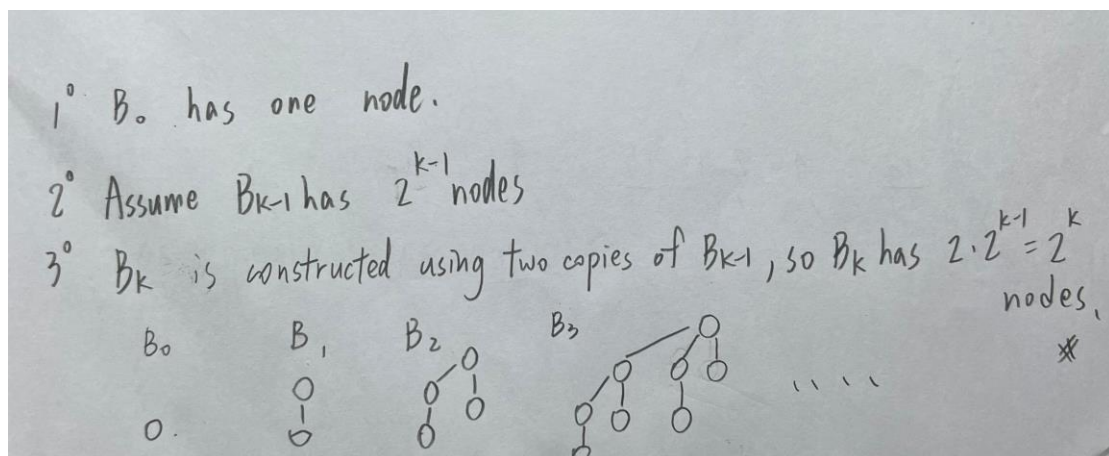 1° B₀ has one node.
2° Assume Bₖ₋₁ has 2ᵏ⁻¹ nodes
3° Bₖ is constructed using two copies of Bₖ₋₁, so Bₖ has 2·2ᵏ⁻¹ = 2ᵏ
nodes.
B₀ B₁ B₂ B₃
....